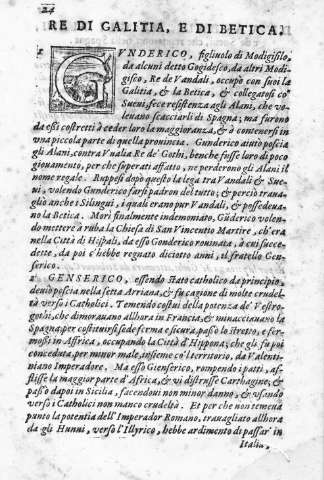 24
RE DI GALITIA, E DI BETICA.
1
GVNDERICO, figliuolo di Modigisilo,
da alcuni detto Gogidesco, da altri Modi-
gisco, Re de Vandali, occupò con suoi la
Galitia, & la Betica, & collegatosi co'
Sueui, fece resistenza agli Alani, che vo-
leuano scacciarli di Spagna; ma furono
da essi costretti à ceder loro la maggioranza, & à contenersi in
vna piccola parte di quella prouincia. Gunderico aiutò poscia
gli Alani, contra Vualia Re de' Gothi, benche fusse loro di poco
giouamento, perche superati affatto, ne perderono gli Alani il
nome regale. Ruppesi dopò questo la lega tra Vandali & Sue-
ui, volendo Gunderico farsi padron del tutto; & perciò traua-
gliò anche i Silingui, i quali erano pur Vandali, & possedeua-
no la Betica. Morì finalmente indemoniato, Gũderico volen-
do mettere à ruba la Chiesa di San Vincentio Martire, ch'era
nella Città di Hispali, da esso Gonderico rouinata, à cui succe-
dette, da poi c'hebbe regnato diciotto anni, il fratello Gen-
serico.
2 GENSERICO, essendo stato catholico da principio,
deuiò poscia nella setta Arriana, & fu cagione di molte crudel-
tà verso i Catholici. Temendo costui della potenza de' Vestro-
gothi, che dimorauano allhora in Francia, & minacciauano la
Spagna; per costituirsi sede ferma e sicura, passò lo stretto, e fer-
mossi in Affrica, occupando la Città d'Hyppona; che gli fu poi
conceduta, per minor male, insieme co'l territorio, da Valenti-
niano Imperadore. Ma esso Gienserico, rompendo i patti, af-
flisse la maggior parte d'Africa, & vi distrusse Carthagine; &
passò dapoi in Sicilia, facendoui non minor danno, & vsando
verso i Catholici non manco crudeltà. Et per che non temeua
punto la potentia dell'Imperador Romano, trauagliato allhora
da gli Hunni, verso l'Illyrico, hebbe ardimento di passar' in
Italia,